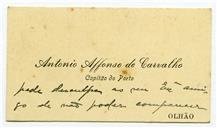 Antonio Affonso de Carvalho
Capitão do Porto
pede desculpa ao seu Exº ami
go de não poder comparecer
OLHÃO